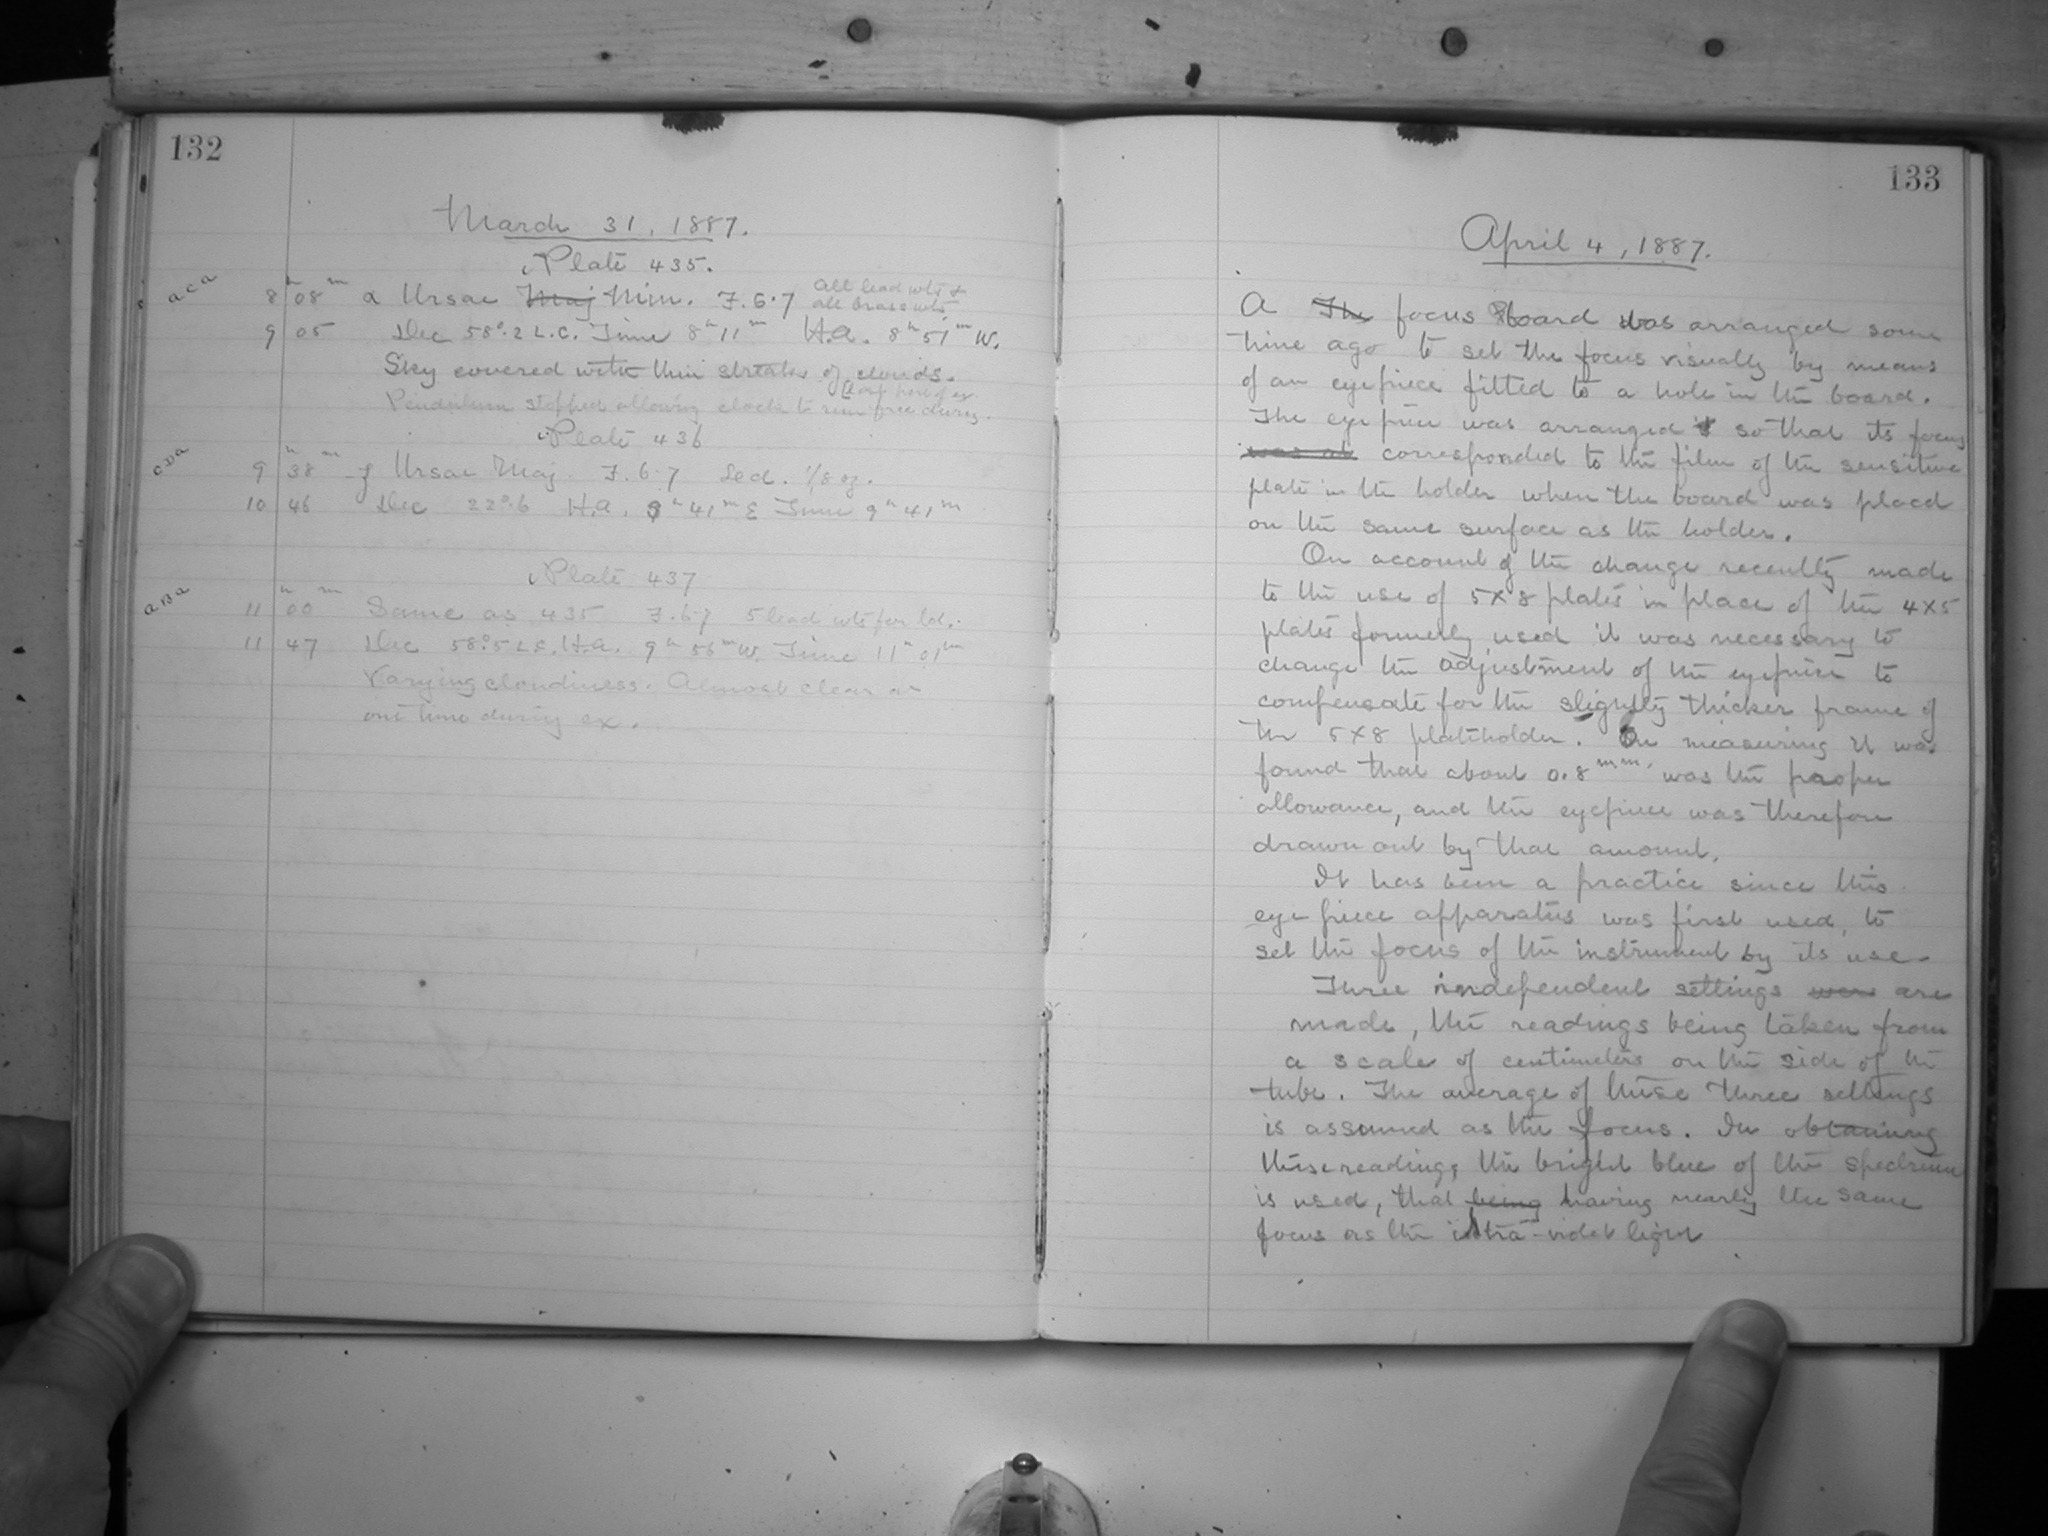 132
March 31, 1887.
Plate 435.
aca 8 h 08 m α Ursae Maj Min. F. 6.7 All lead wts & all brass wts
9 05 Dec 58°.2 L.C. Time 8h 11m H.A. 8h 51m W.
Sky covered with thin streaks of clouds.
Pendulum stopped allowing clock to run free during last part of ex.
Plate 436
9 h 38 m Ursae Maj. F. 6.7 Led. 1/8 oz.
10 46 Dec 22°.6 H.A. 9h 41m E Time 9h 41m
Plate 437
aBa 11 h 00 m Same as 435 F. 6.7 5 lead wts for bal.
11 47 Dec 58°.5 L.C. H.A. 9h 56m W. Time 11h 01m
Varying cloudiness. Almost clear at
one time during ex.
133
April 4, 1887.
A The focus Board was arranged some
time ago to set the focus visually by means
of an eyepiece fitted to a hole in the board.
The eyepiece was arranged so that its focus
was at corresponded to the film of the sensitive
plate in the holder when the board was placed
on the same surface as the holder.
On account of the change recently made
to the use of 5x8 plates in place of the 4x5
plates formerly used it was necessary to
change the adjustment of the eyepiece to
compensate for the slightly thicker frame of
the 5x8 plateholder. On measuring it was
found that about 0.8 mm. was the proper
allowance, and the eyepiece was therefore
drawn out by that amount.
It has been a practice since this
eye piece apparatus was first used, to
set the focus of the instrument by its use.
Three independent settings were are
made, the readings being taken from
a scale of centimeters on the side of the
tube. The average of these three settings
is assumed as the focus. In obtaining
these readings the bright blue of the spectrum
is used, that being having nearly the same
focus as the ultra-violet light